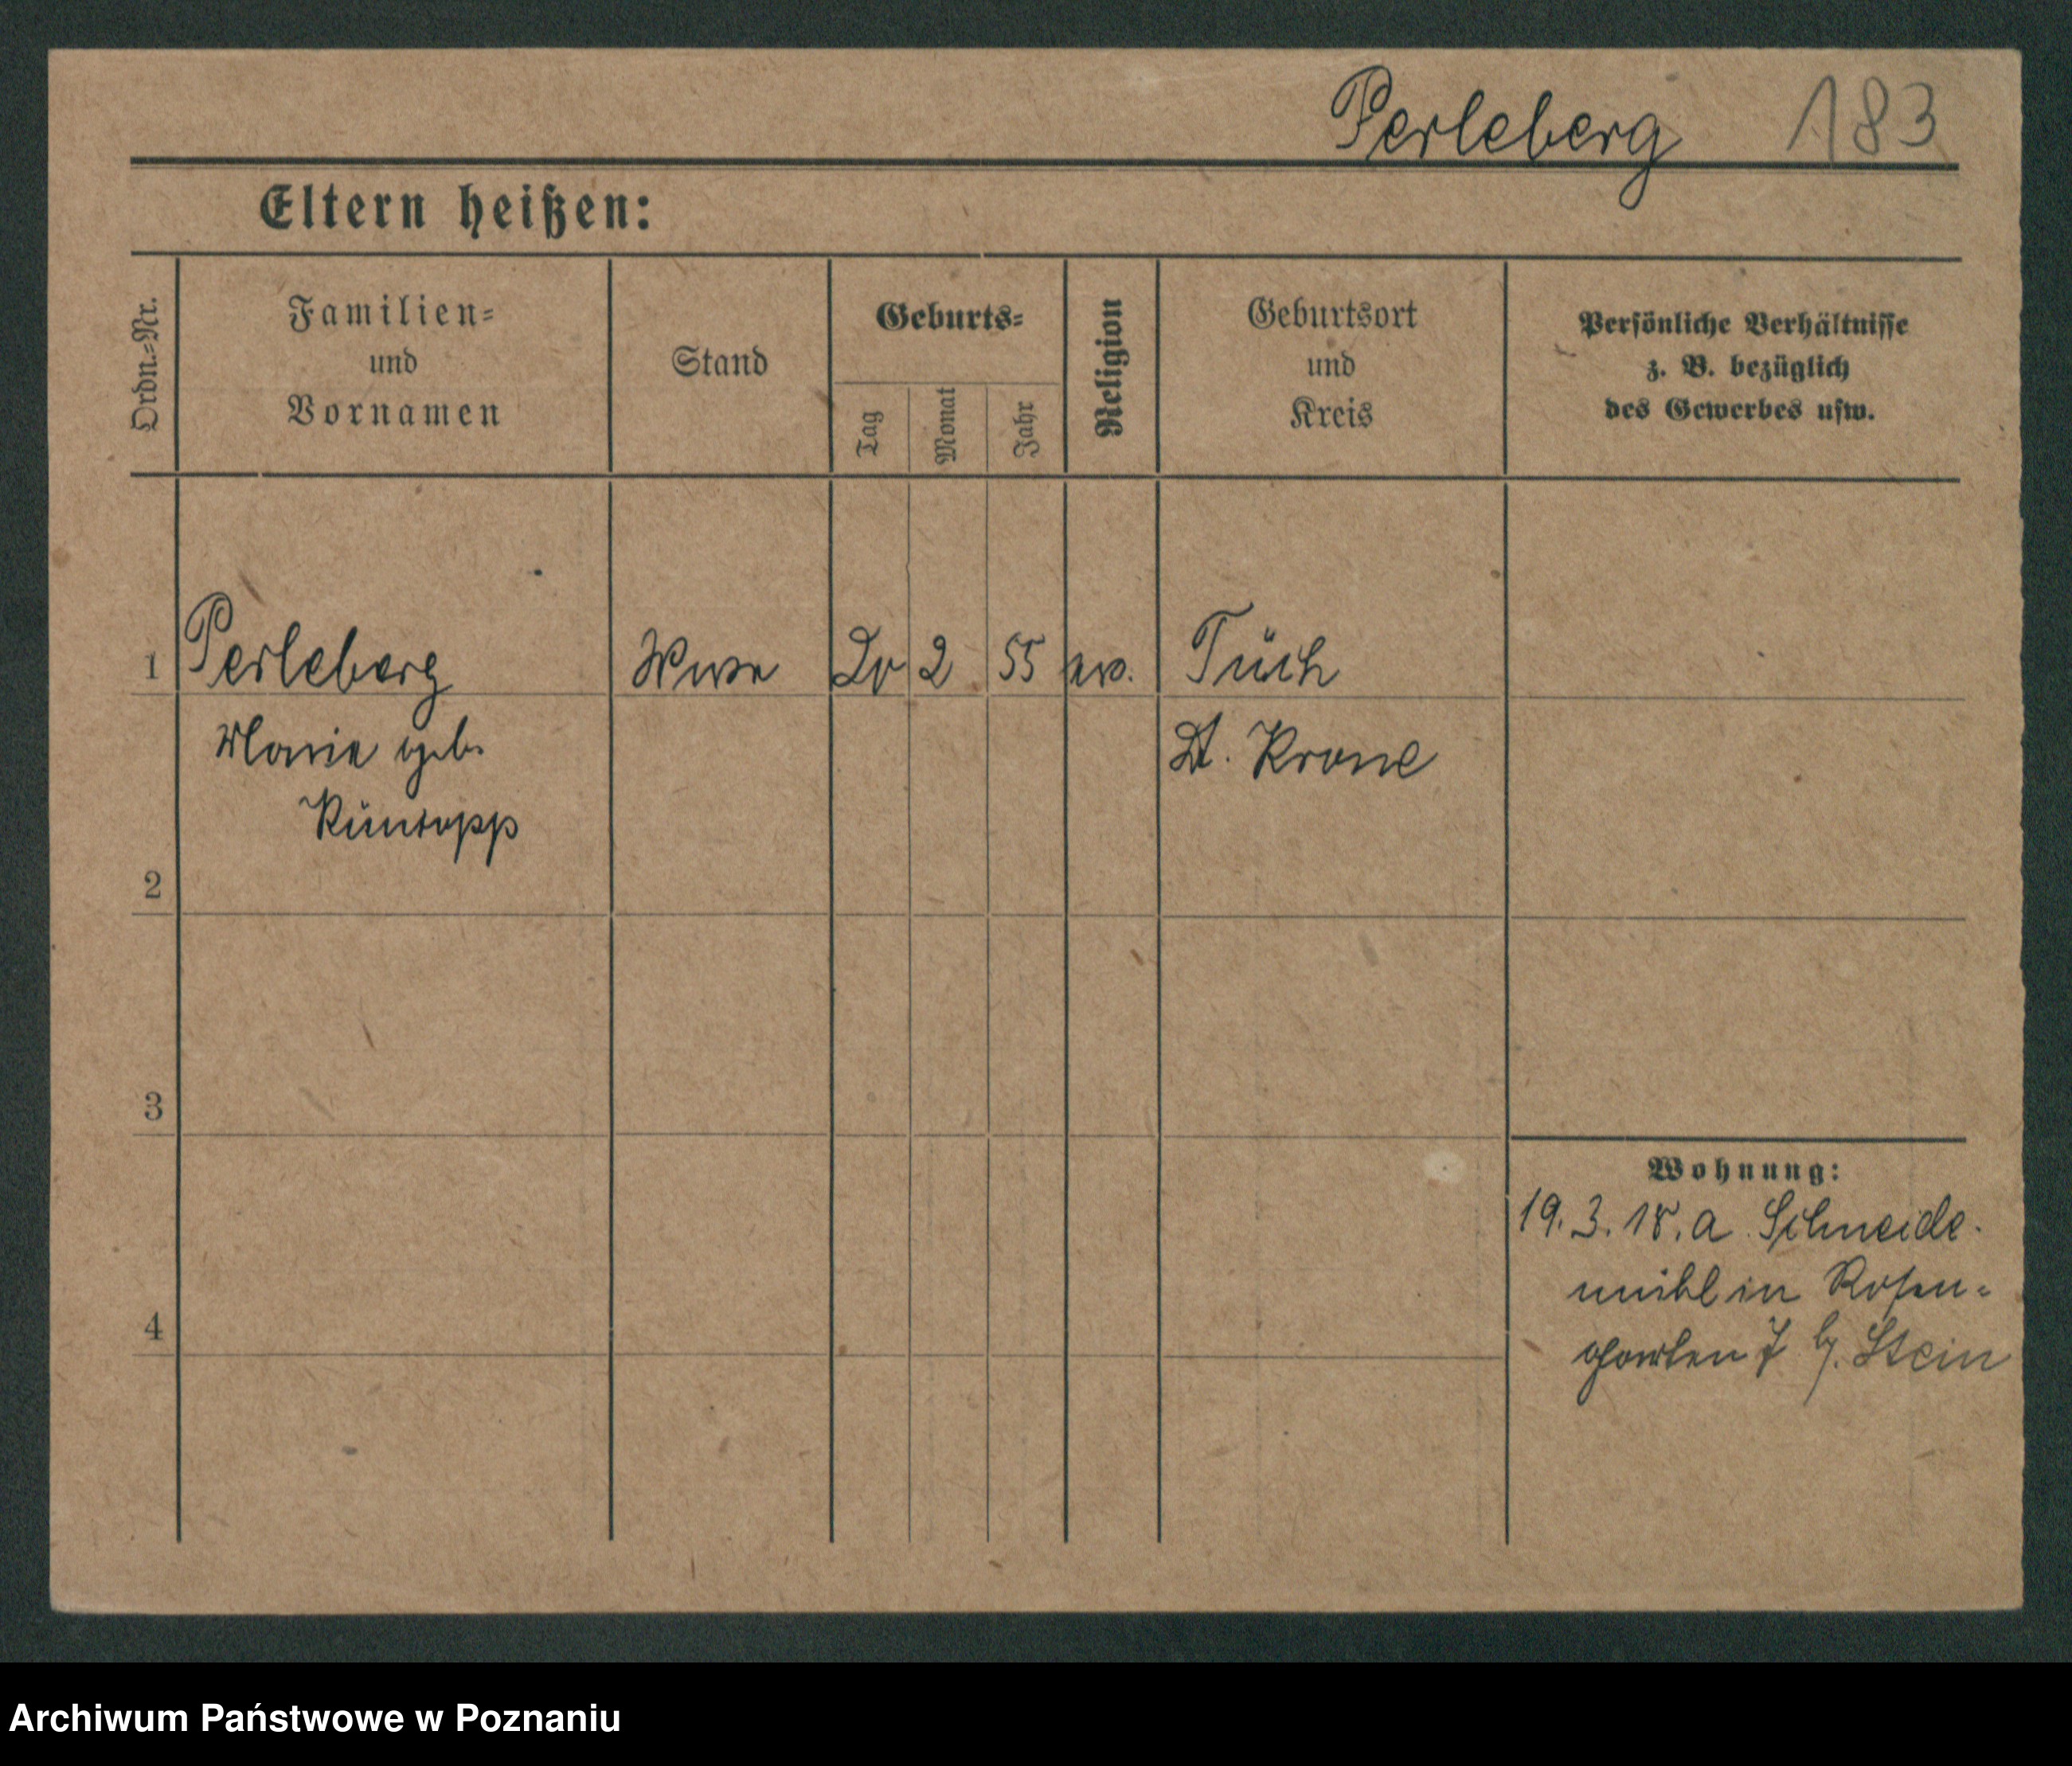 Perleberg 183
Eltern heißen:
Ordn.=Nr.
Familien=
und
Vornamen
Stand
Geburts=
Tag
Monat
Jahr
Religion
Geburtsort
und
Kreis
Persönliche Verhältnisse
z. B. bezüglich
des Gewerbes usw.
1 Perleberg Wwe 2 55 ev.
Marie geb. Dt. Krone
2
3
4
Wohnung:
19. 3. 18. a Schneide.
mühl in Rosen=
garten 7 b/. Stein
Archiwum Państwowe w Poznaniu